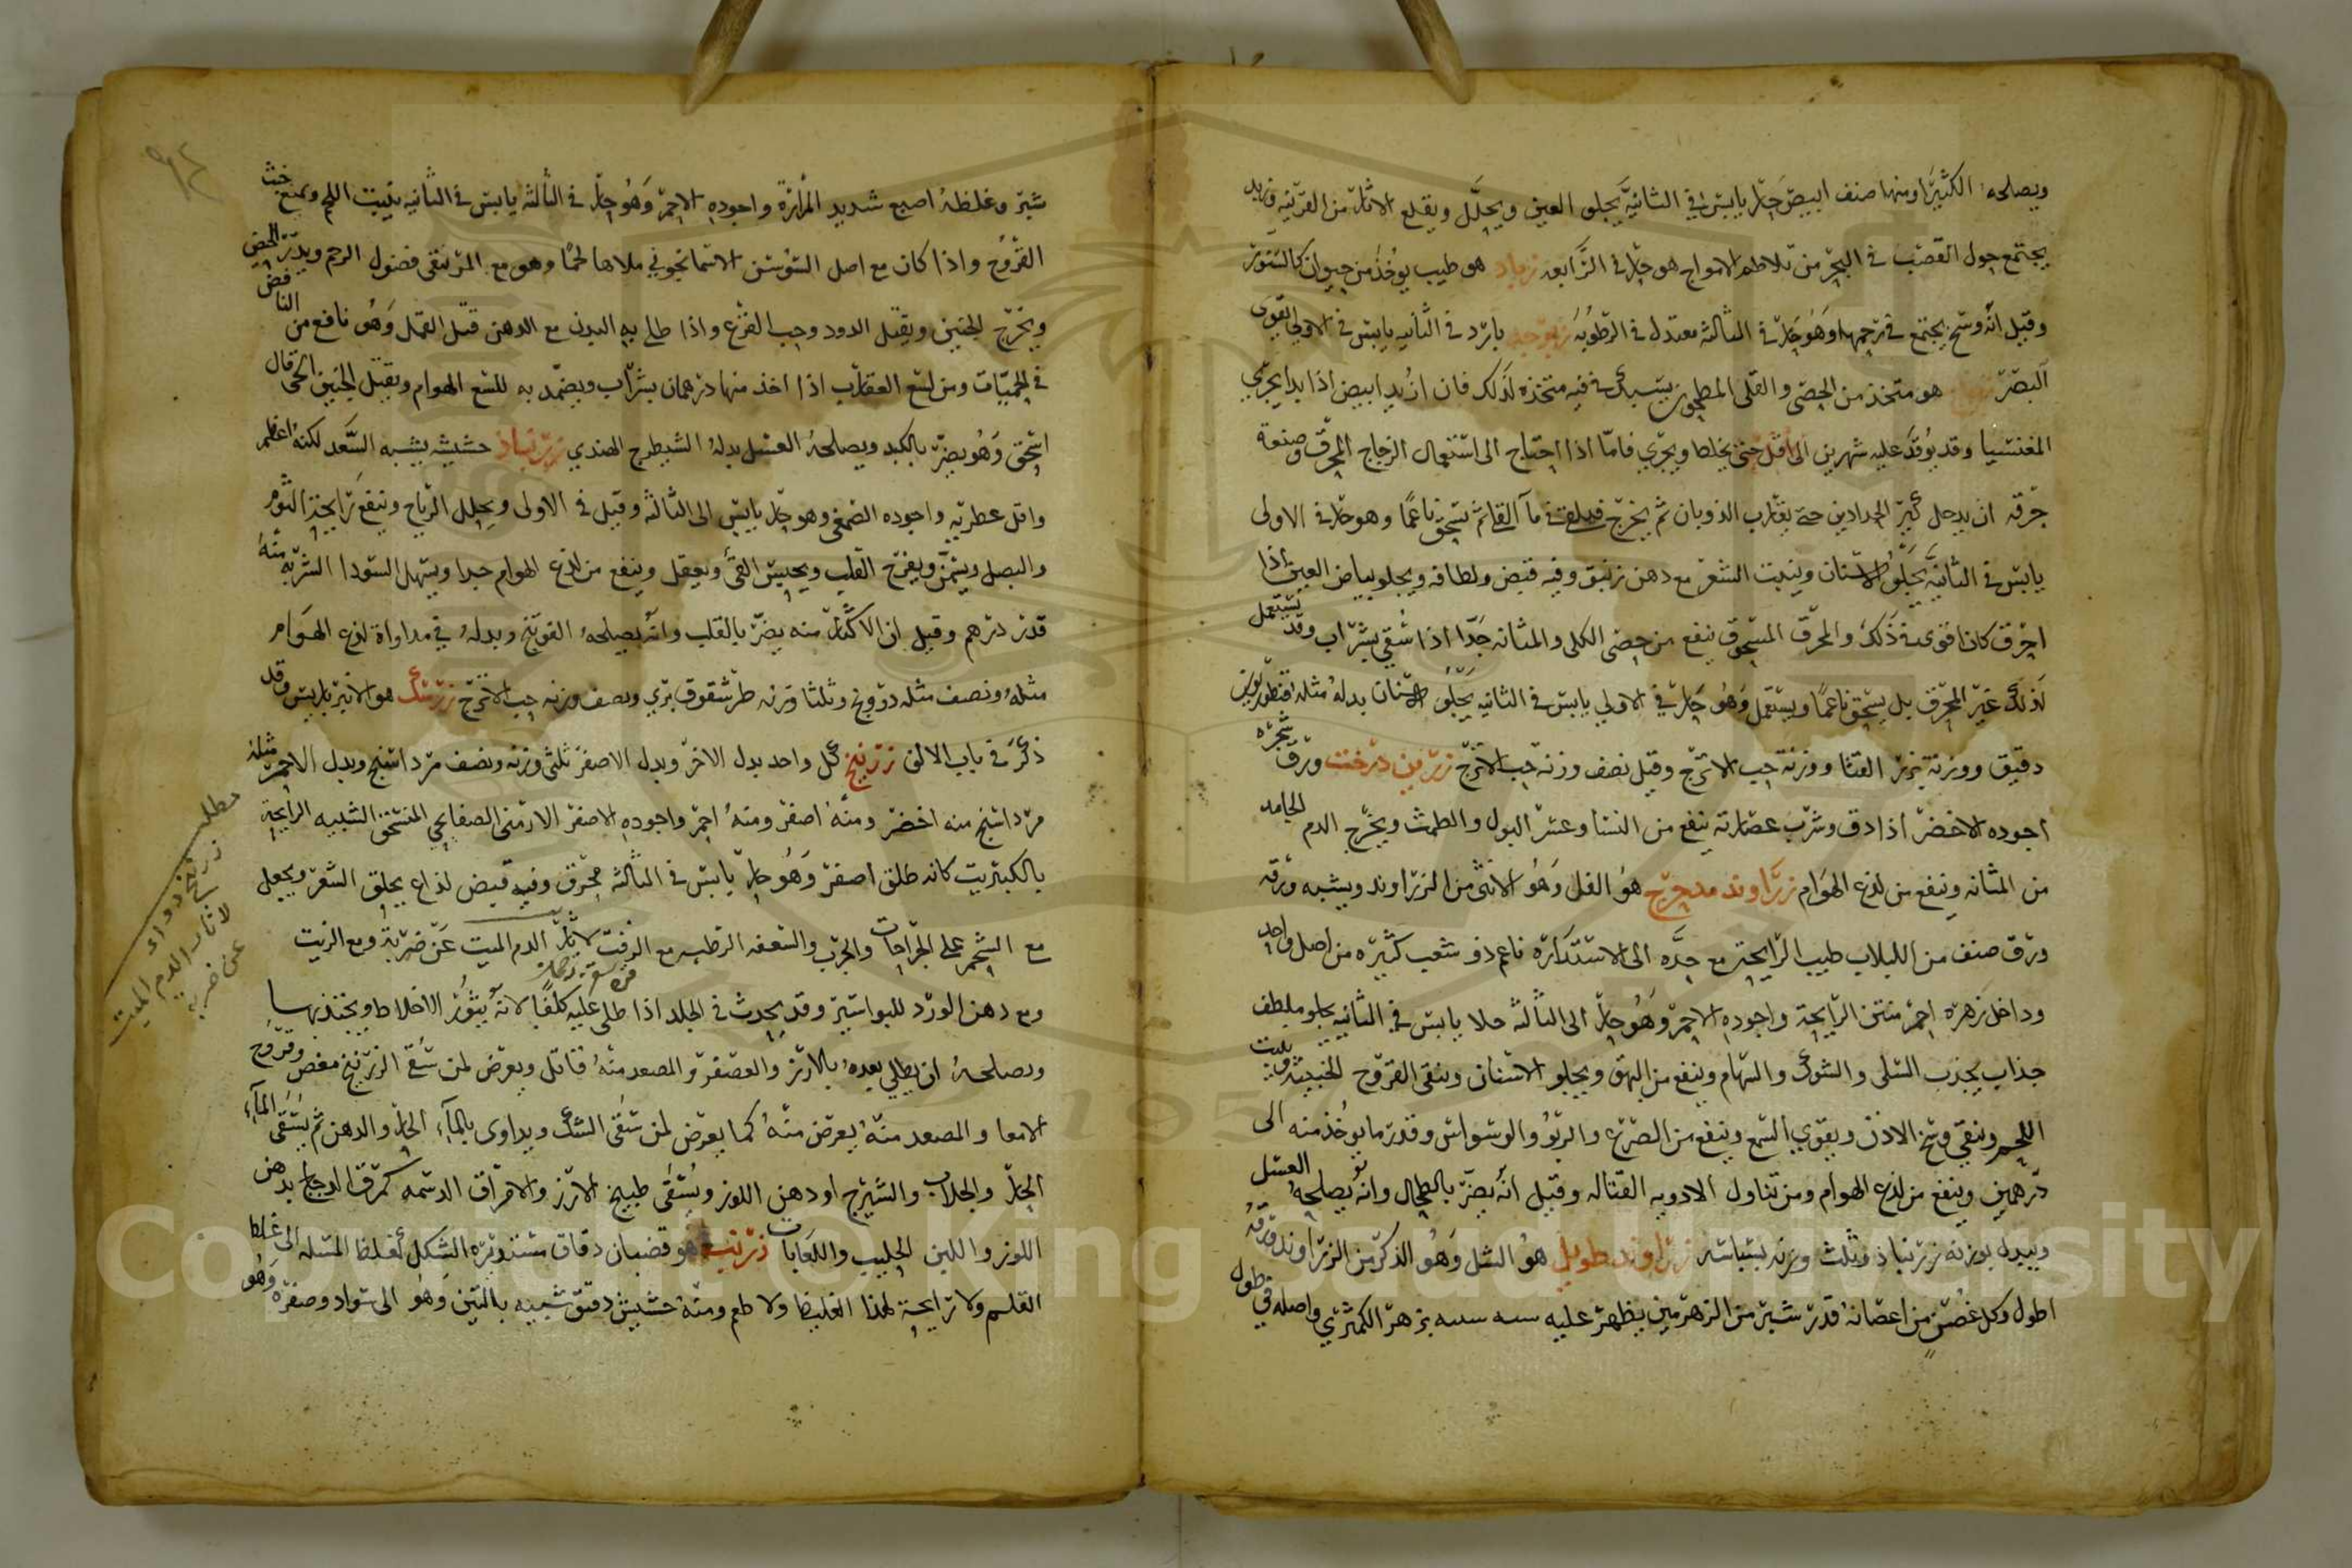 ويصلحه الكثيرا ومنها صنف ابيض حار يابس في الثانية يجلو العين ويحلل ويقلع الاثار من القرنيه وزبد
يجتمع حول القصب في البحر من تلاطم الامواج هو حار في الرابعه زباد هو طيب يوخذ من حيوان كالسنور
وقيل انه وسخ يجتمع في رحمها وهو حار في الثالثة معتدل في الرطوبة زبرجد بارد في الثانيه يابس في الاولى يقوي
البصر زجاج هو متخذ من الحصى والقلى المطحون يسبك في فيه متخذه لذلك فان اريد ابيض اذا بدا يجري
المغنيسيا وقد يوقد عليه شهرين الى اقل حتى يختلط ويجري فاما اذا احتاج الى استعمال الزجاج المحرق وصنعة
حرقه ان يدخل كير الحدادين حتى يقارب الذوبان ثم يخرج فيلقى في ماء القلي ثم يسحق ناعما وهو حار في الاولى
يابس في الثانية يجلو الاسنان وينبت الشعر مع دهن زنبق وفيه قبض ولطافه ويجلو بياض العين اذا
احرق كان اقوى في ذلك والمحرق المسحوق ينفع من حصى الكلى والمثانه جدا اذا سقي بشراب وقد يستعمل
لذلك غير المحرق بل يسحق ناعما ويستعمل وهو حار في الاولي يابس في الثانيه يجلو الاسنان بدله مثله
دقيق ووزنه بزر القثا ووزنه حب الاترج وقيل نصف وزنه حب الاترج زرين درخت ورق شجره
اجوده الاخضر اذا دق وشرب عصارته ينفع من النسا وعسر البول والطمث ويخرج الدم الجامد
من المثانه وينفع من لذع الهوام زراوند مدحرج هو الفل وهو الانثى من الزراوند ويشبه ورقه
ورق صنف من اللبلاب طيب الرايحة مع حده الى الاستدارة ناعم ذو شعب كثيره من اصل واحد
وداخل زهره احمر منتن الرايحة واجوده الاحمر وهو حار الى الثالثه حلا يابس في الثانيه يجلو ملطف
جذاب يجذب السلى والشوك والسهام وينفع من البهق ويجلو الاسنان وينقى القروح الخبيثة وينبت
اللحم وينقي وسخ الاذن ويقوي السمع وينفع من الصرع والربو والوسواس وقدر ما يوخذ منه الى
درهمين وينفع من لذع الهوام ومن تناول الادويه القتاله وقيل انه يضر بالطحال وانه يصلحه العسل
ويبدل بوزنه زرنباذ وثلث وزنه بسباسه زراوند طويل هو الشل وهو الذكر من الزراوند ورقه
اطول وكل غصن من اغصانه قدر شبر من الزهرمين يظهر عليه بزهر الكمثري واصله في طول
شبر وغلظه اصبع شديد المرارة واجوده الاحمر وهو حار في الثالثه يابس في الثانيه ينبت اللحم ويمنع خبث
القروح واذا كان مع اصل السوسن الاسمانجوني ملاها لحما وهو مع المر ينقى فضول الرحم ويدر الحيض
ويخرج الجنين ويقتل الدود وحب القرع واذا طلي به البدن مع الدهن قتل القمل وهو نافع من النافض
في الحميات ومن لسع العقارب اذا اخذ منها درهمان بشراب ويضمد به للسع الهوام ويقتل الجنين الحي قال
اسحق وهو يضر بالكبد ويصلحه العسل بدله الشيطرج الهندي زرنباذ حشيشه يشبه السعد لكنه اعظم
واقل عطريه واجوده الصمغي وهو حار يابس الى الثالثه وقيل في الاولى ويحلل الرياح وينفع رايحة الثوم
والبصل ويسمن ويفرح القلب ويحبس القي ويعقل وينفع من لذع الهوام جدا ويسهل السودا الشربه منه
قدر درهم وقيل ان الاكثار منه يضر بالقلب وانه يصلحه الفوتنج وبدله في مداواة لذع الهوام
مثله ونصف مثله درونج وثلثا وزنه طرشقوق بري ونصف وزنه حب الاترج زرشك هو الانبرباريس وقد
ذكر في باب الالف زرنيخ كل واحد بدل الاخر وبدل الاصفر ثلثي وزنه ونصف مرداسنج وبدل الاحمر مثله
مرداسنج منه اخضر ومنه اصفر ومنه احمر واجوده الاصفر الارمنى الصفايحي المنسحق الشبيه الرايحة
بالكبريت كانه طلق اصفر وهو حار يابس في الثالثه محرق وفيه قبض لذاع يحلق الشعر ويجعل
مع الشحم على الجراحات والجرب والسعفه الرطبه مع الزفت لاثار الدم الميت عن ضربة ومع الزيت
ومع دهن الورد للبواسير وقد يحدث في الجلد اذا طلى عليه كلفا لانه يثور الاخلاط ويجتذبها
ويصلحه ان يطلي بعده بالارز والعصفر والمصعد منه قاتل ويعرض لمن سقي الزرنيخ مغص وقروح
الامعا والمصعد منه يعرض منه كما يعرض لمن سقى الشك ويداوى بالماء الحار والدهن ثم يسقى الماء
الحار والجلاب والشيرج او دهن اللوز ويسقى طبيخ الارز والامراق الدسمه كمرق الدجاج بدهن
اللوز واللبن الحليب واللعابات زرنب هو قضبان دقاق مستديره الشكل اغلظ المسله الى غلظ
القلم ولا رايحة لهذا الغليظ ولا طعم ومنه حشيش دقيق شبيه بالتبن وهو الى سواد وصفره وهو
مطلب
زرنيخ دواى
لاثار الدم الميت
عن ضربه
Copyright © King Saud University
1957